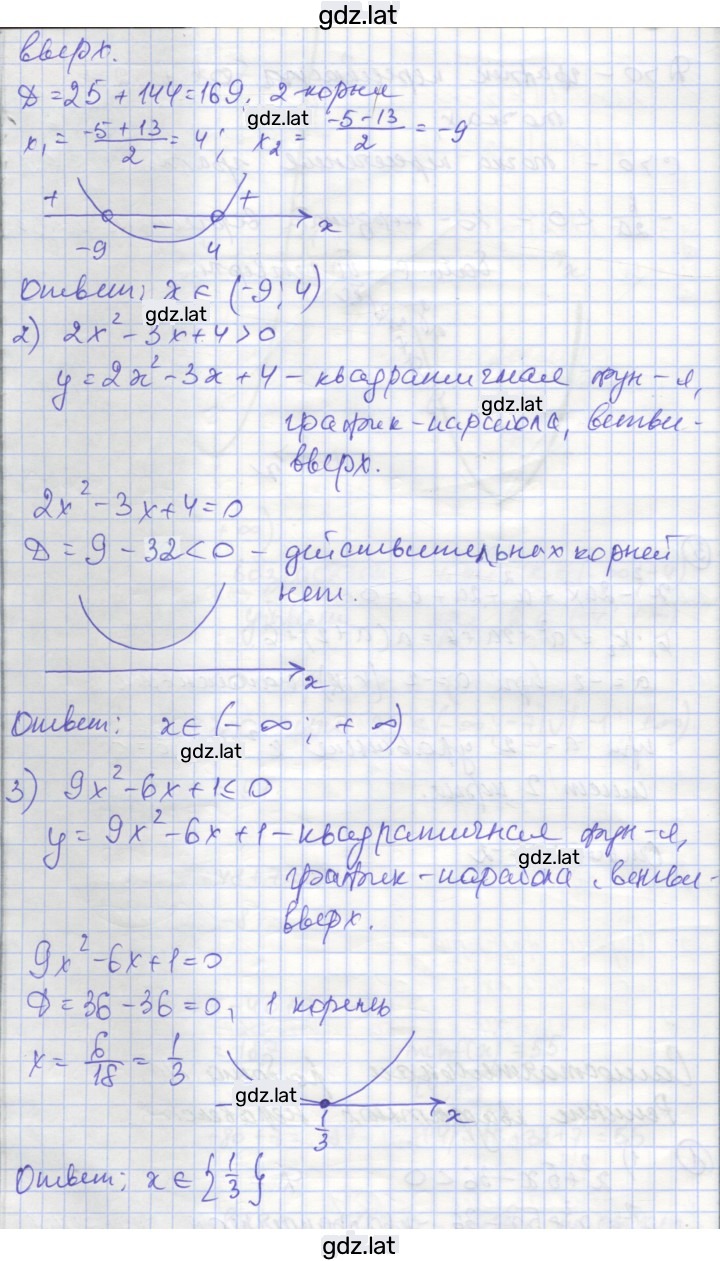 gdz.lat
вверх.
D = 25 + 144 = 169, 2 корня
gdz.lat
x₁ = (-5 + 13)/2 = 4; x₂ = (-5 - 13)/2 = -9
+ − + x
-9 4
Ответ: x ∈ (-9; 4)
gdz.lat
2) 2x² - 3x + 4 > 0
y = 2x² - 3x + 4 – квадратичная фун-я,
gdz.lat
график - парабола, ветви -
вверх.
2x² - 3x + 4 = 0
D = 9 - 32 < 0 – действительных корней
нет.
x
Ответ: x ∈ (-∞; +∞)
gdz.lat
3) 9x² - 6x + 1 ≤ 0
y = 9x² - 6x + 1 – квадратичная фун-я,
gdz.lat
график - парабола, ветви -
вверх.
9x² - 6x + 1 = 0
D = 36 - 36 = 0, 1 корень
x = 6/18 = 1/3
gdz.lat
x
1/3
Ответ: x ∈ {1/3}
gdz.lat